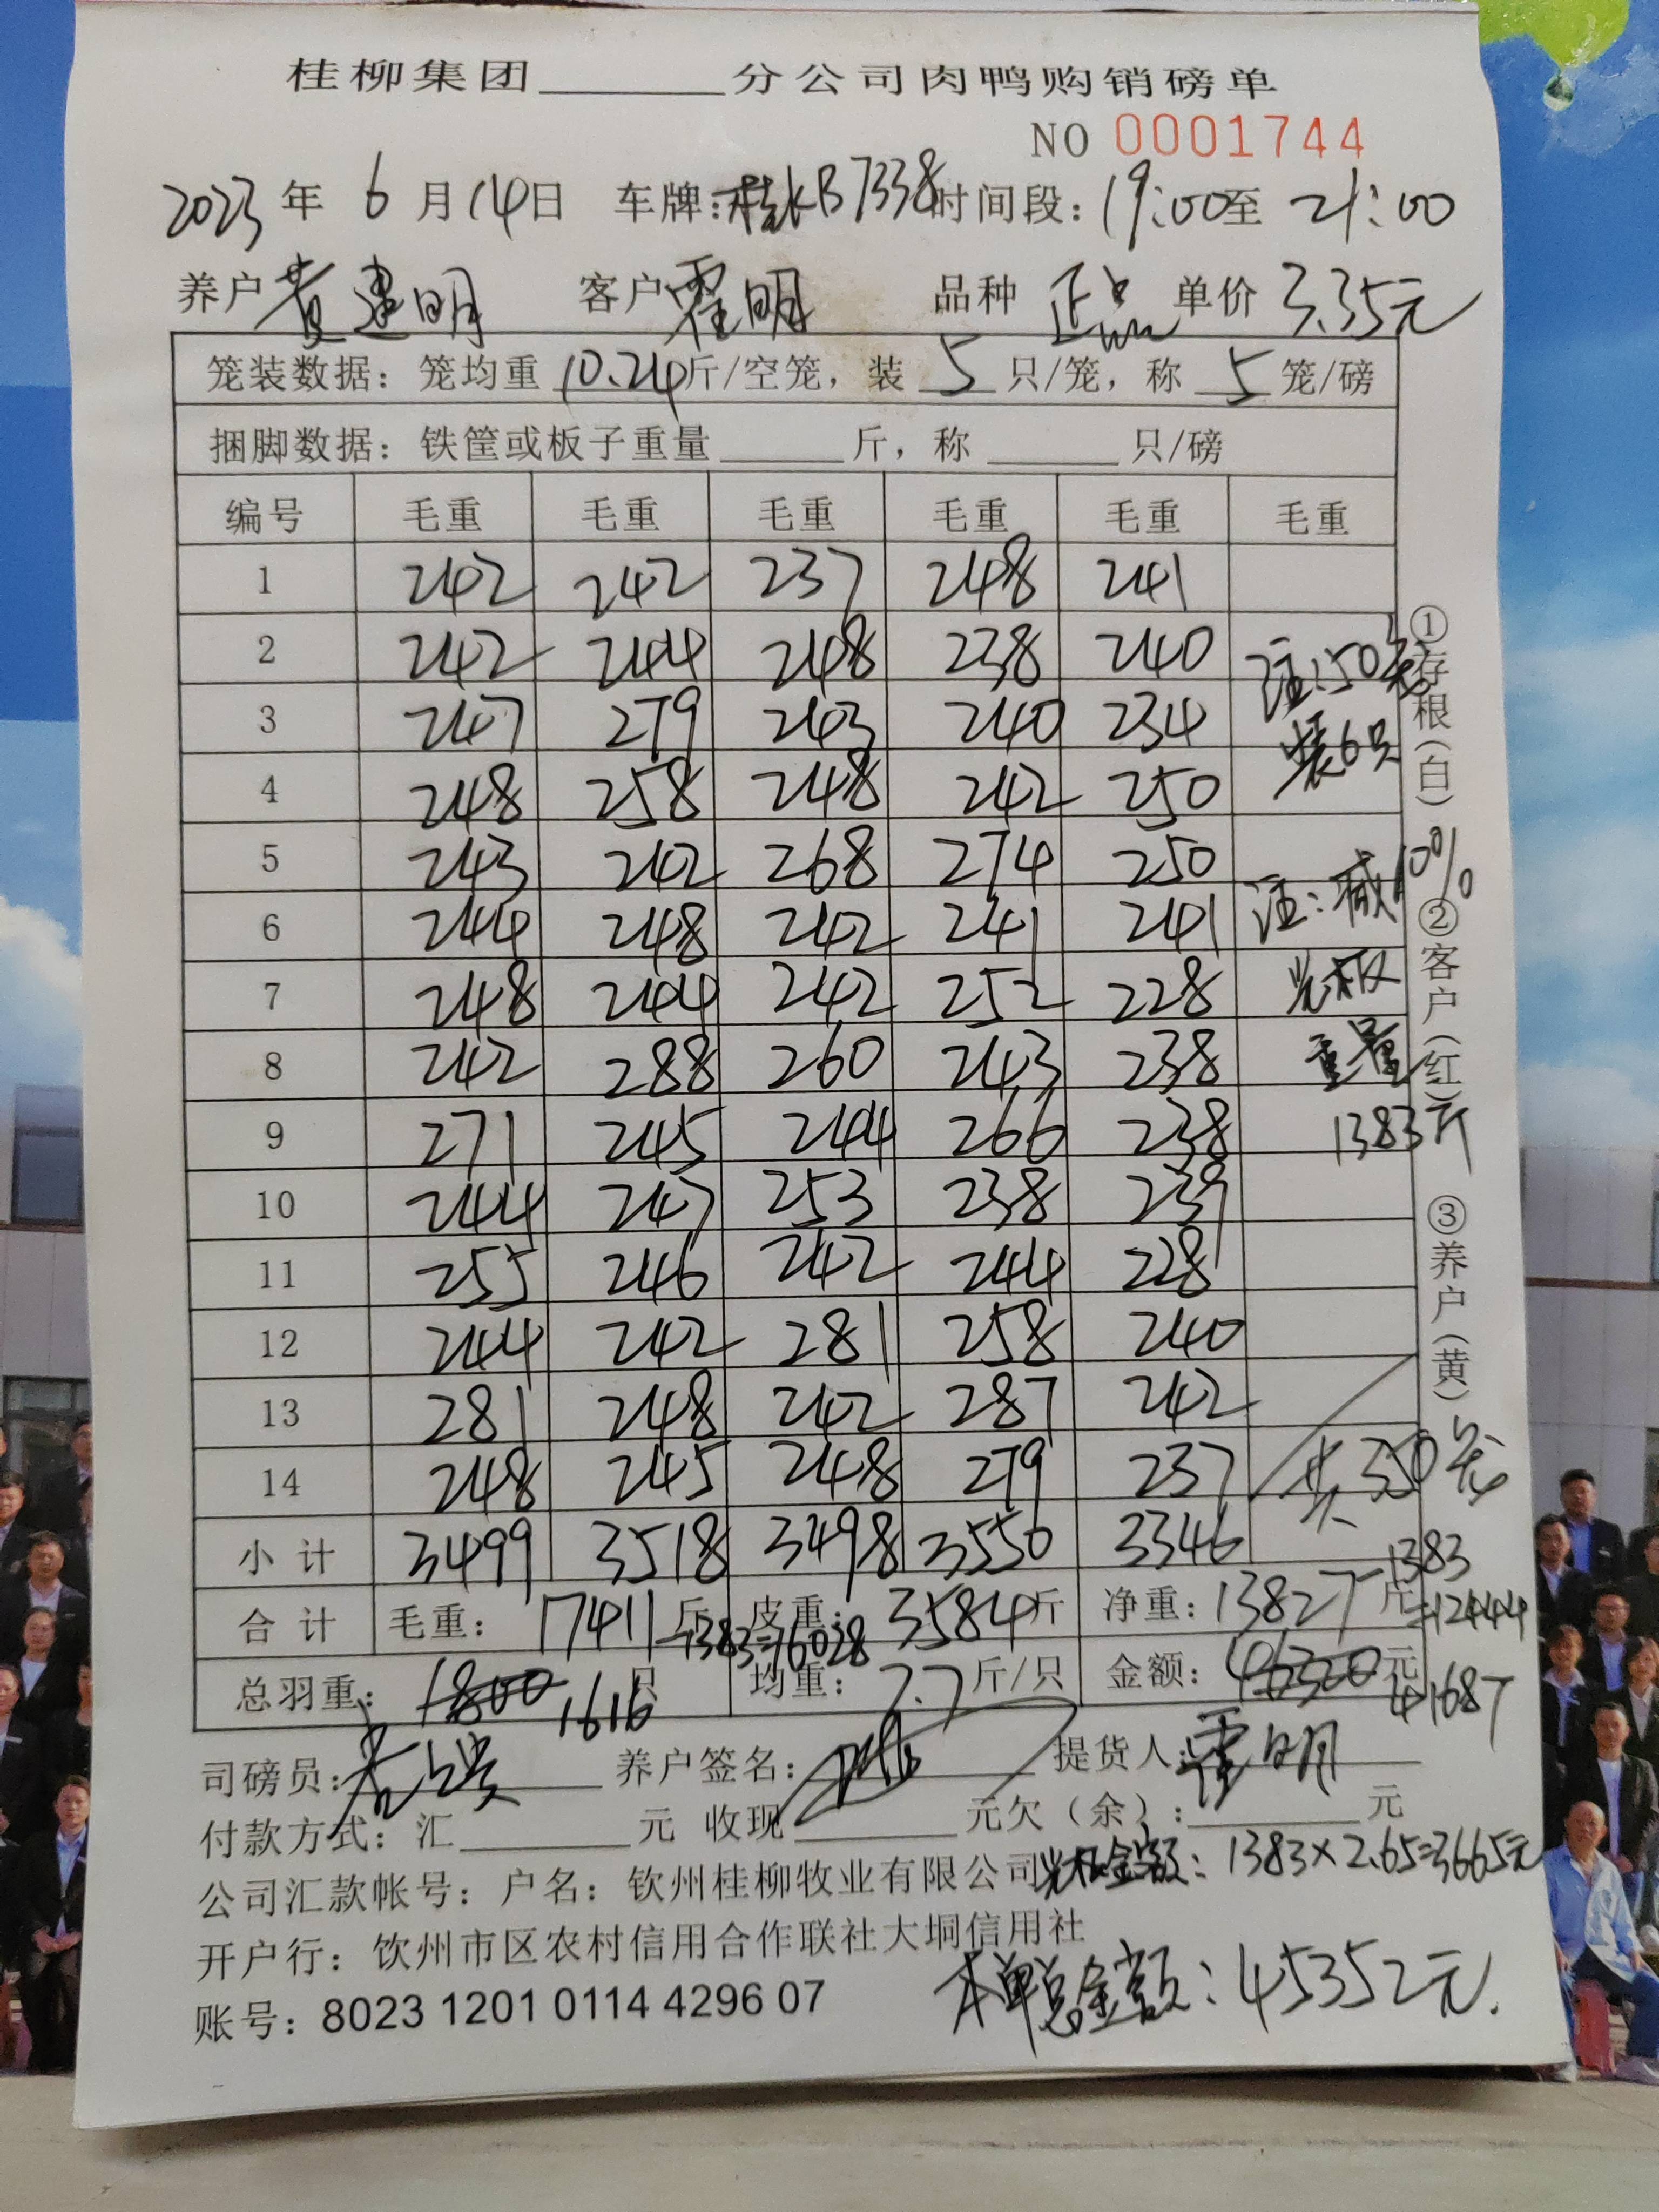 桂柳集团______分公司肉鸭购销磅单
NO 0001744
2023年 6月14日 车牌:桂KB7338 时间段:19:00至 21:00
养户 黄建明 客户 霍明 品种 正品 单价 3.35元
笼装数据: 笼均重 10.24斤/空笼, 装 5 只/笼, 称 5 笼/磅
捆脚数据: 铁筐或板子重量______斤, 称______只/磅
编号 毛重 毛重 毛重 毛重 毛重 毛重
1 242 242 237 248 241
2 242 244 248 238 240 注:50笼
3 247 279 243 240 234 装6只
4 248 258 248 242 250
5 243 242 268 274 250
6 244 248 242 241 241 注:减10%
7 248 244 242 252 228 光板
8 242 288 260 243 238 重量
9 271 245 244 266 238 1383斤
10 244 247 253 238 239
11 255 246 242 244 228
12 244 242 281 258 240
13 281 248 242 287 242
14 248 245 248 279 237 共350笼
小计 3499 3518 3498 3550 3346
合计 毛重: 17411斤 皮重: 3584斤 净重: 13827斤 -1383 =12444
-1383=16028
总羽重: 1800 1616 只 均重: 7.7斤/只 金额: 46320元
41687
司磅员: 养户签名: 提货人: 霍明
付款方式: 汇______元 收现______元欠(余):______元
公司汇款帐号: 户名: 钦州桂柳牧业有限公司 光板金额: 1383×2.65=3665元
开户行: 钦州市区农村信用合作联社大垌信用社
账号: 8023 1201 0114 4296 07
本单总金额: 45352元.
①存根(白) ②客户(红) ③养户(黄)